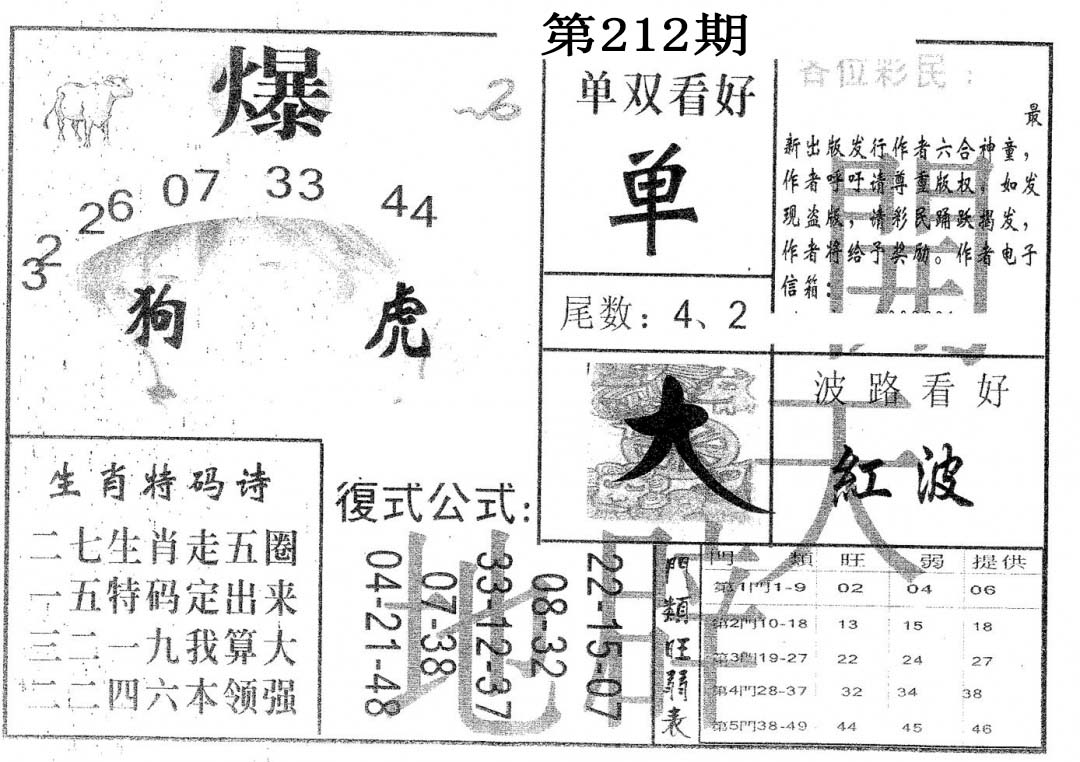 第212期
爆
32
26
07
33
44
狗
虎
单双看好
单
尾数：4、2
各位彩民：
最
新出版发行作者六合神童，
作者呼吁请尊重版权。如发
现盗版，请彩民踊跃揭发，
作者将给予奖励。作者电子
信箱：
大
波路看好
紅波
生肖特码诗
二七生肖走五圈
一五特码定出来
三二一九我算大
二二四六本领强
復式公式：
04-21-48
07-38
33-12-37
08-32
22-15-07
門類旺弱表
門 類 旺 弱 提供
第1門1-9 02 04 06
第2門10-18 13 15 18
第3門19-27 22 24 27
第4門28-37 32 34 38
第5門38-49 44 45 46